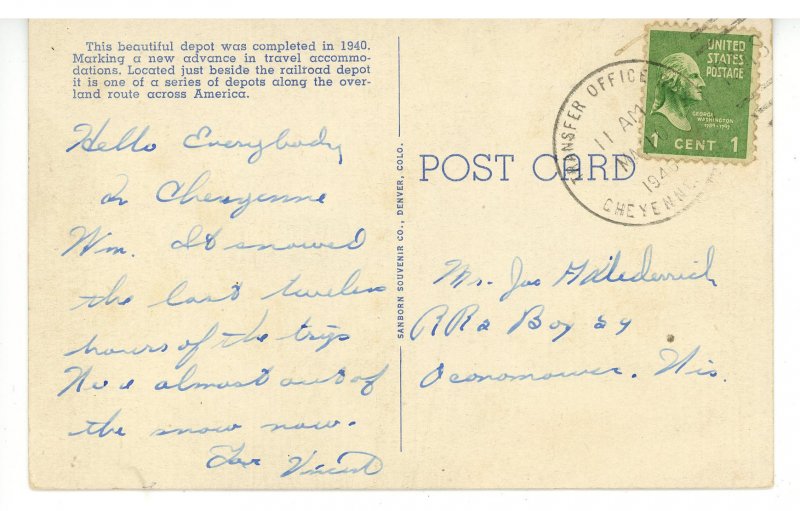 This beautiful depot was completed in 1940.
Marking a new advance in travel accommo-
dations. Located just beside the railroad depot
it is one of a series of depots along the over-
land route across America.
Hello Everybody
In Cheyenne
Wm. It snowed
the last twelve
hours of the trip
We're almost out of
the snow now.
Love Vincent
SANBORN SOUVENIR CO., DENVER, COLO.
POST CARD
TRANSFER OFFICE
11 AM
CHEYENNE
UNITED
STATES
POSTAGE
GEORGE
WASHINGTON
1789-1797
1 CENT 1
Mr. Joe
RR2 Box 29
Oconomowoc. Wis.